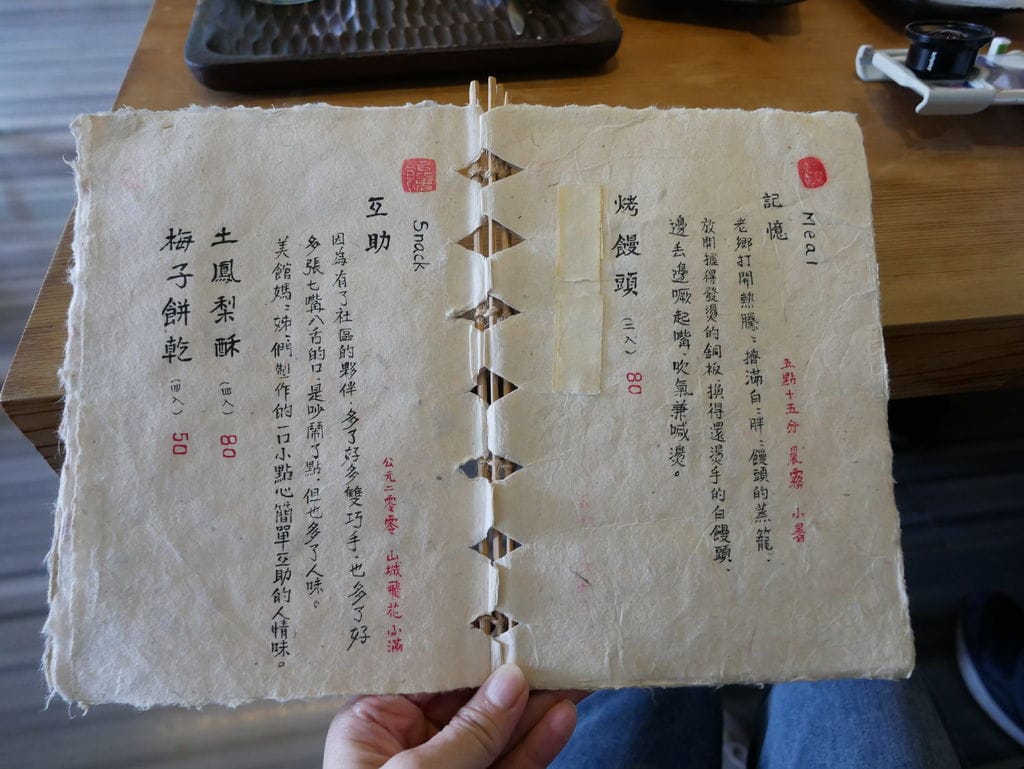 Meal
記憶
五點十五分 農霧 小暑
老鄉打開熱騰:擠滿白:胖:饅頭的蒸籠,
放開握得發燙的銅板,換得還燙手的白饅頭,
邊丟邊噘起嘴,吹氣兼喊燙。
烤饅頭 (二入) 80
Snack
互助
公元二零零零 山城飛花 小滿
因為有了社區的夥伴,多了好多雙巧手,也多了好
多張七嘴八舌的口,是吵鬧了點,但也多了人味。
美館媽:姊:們制作的一口小點心簡單互助的人情味。
土鳳梨酥 (四入) 80
梅子餅乾 (四入) 50